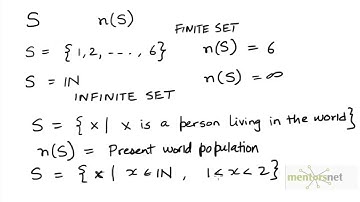 S n(S)
FINITE SET
S = {1,2, ---, 6} n(S) = 6
S = IN n(S) = ∞
INFINITE SET
S = {x | x is a person living in the world}
n(S) = Present world population
S = {x | x ∈ IN, 1≤x<2}
mentorsnet